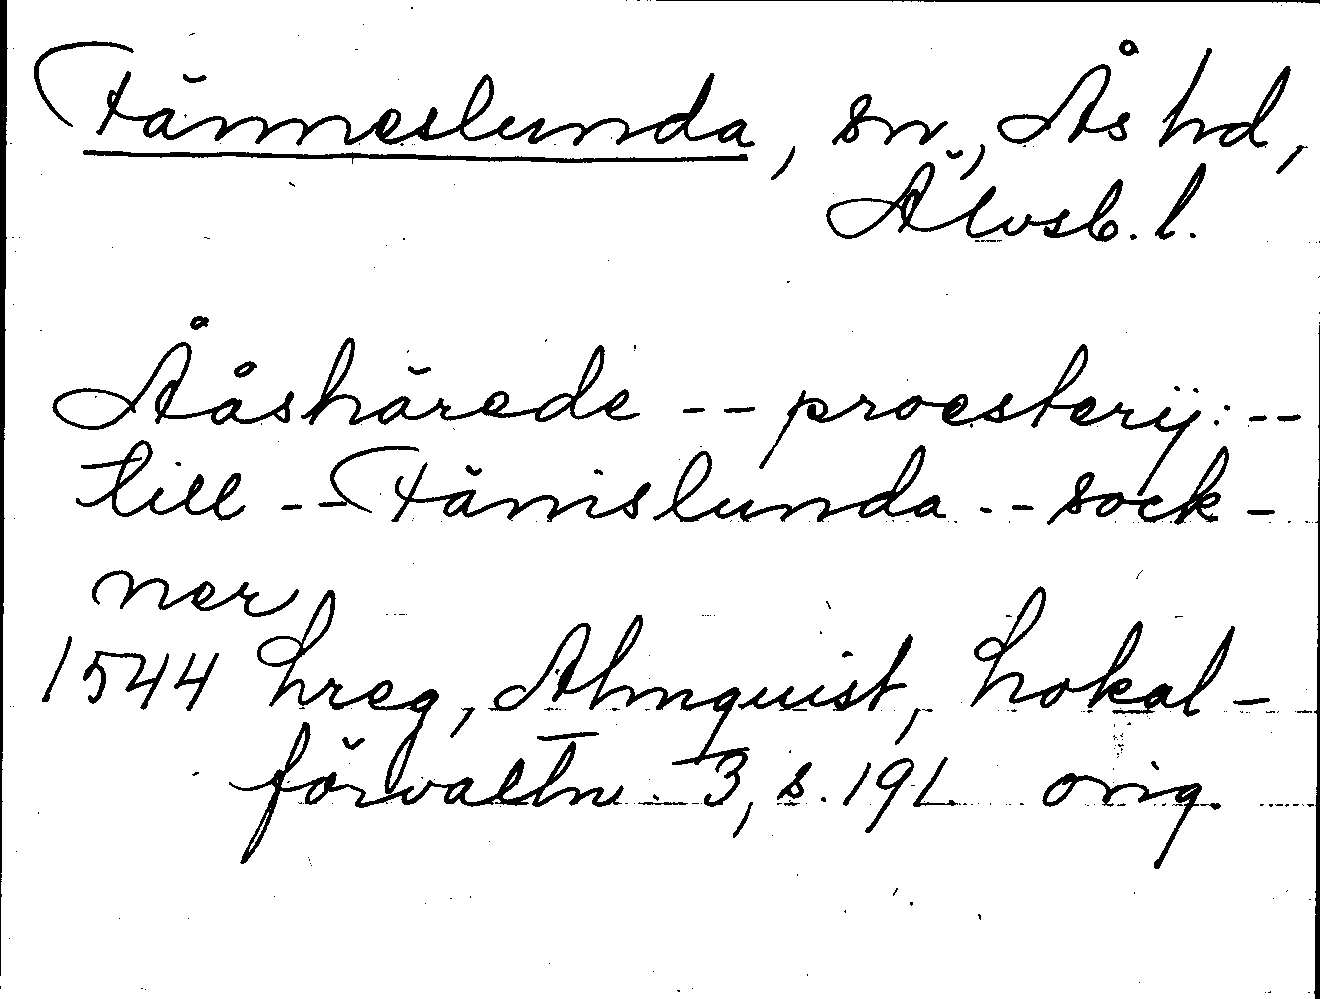 Tämneslunda, sn, Ås hd,
Älvsb. l.
Ååshärede -- proesterij: --
till -- Tämislunda -- sock-
ner
1544 hreg, Almquist, Lokal-
förvaltn. 3, s. 191. orig.